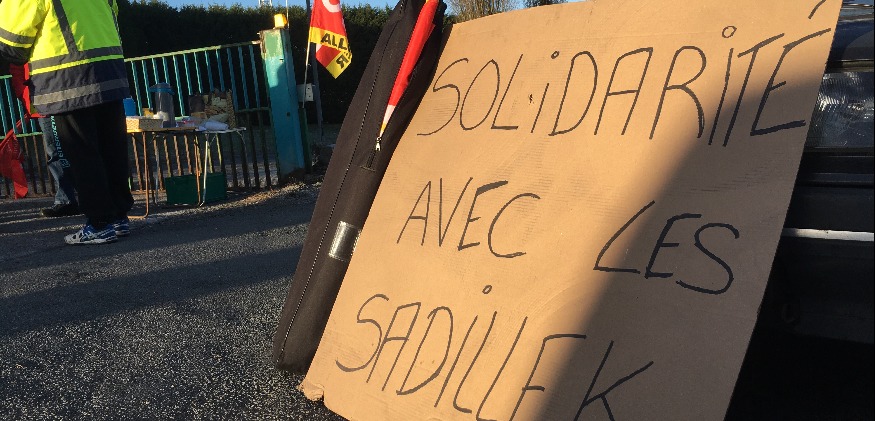 SOLIDARITÉ
AVEC LES
SADILLEK
ALL